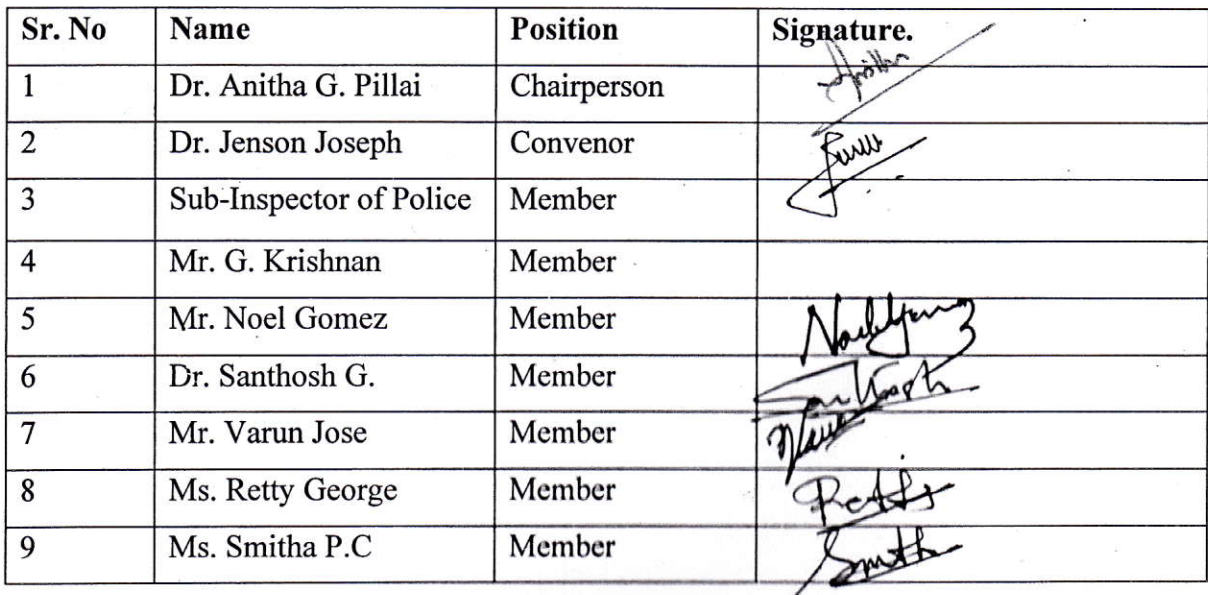 Sr. No Name Position Signature.
1 Dr. Anitha G. Pillai Chairperson Anitha
2 Dr. Jenson Joseph Convenor
3 Sub-Inspector of Police Member
4 Mr. G. Krishnan Member
5 Mr. Noel Gomez Member Noel Gomez
6 Dr. Santhosh G. Member Santhosh
7 Mr. Varun Jose Member
8 Ms. Retty George Member Retty
9 Ms. Smitha P.C Member Smitha